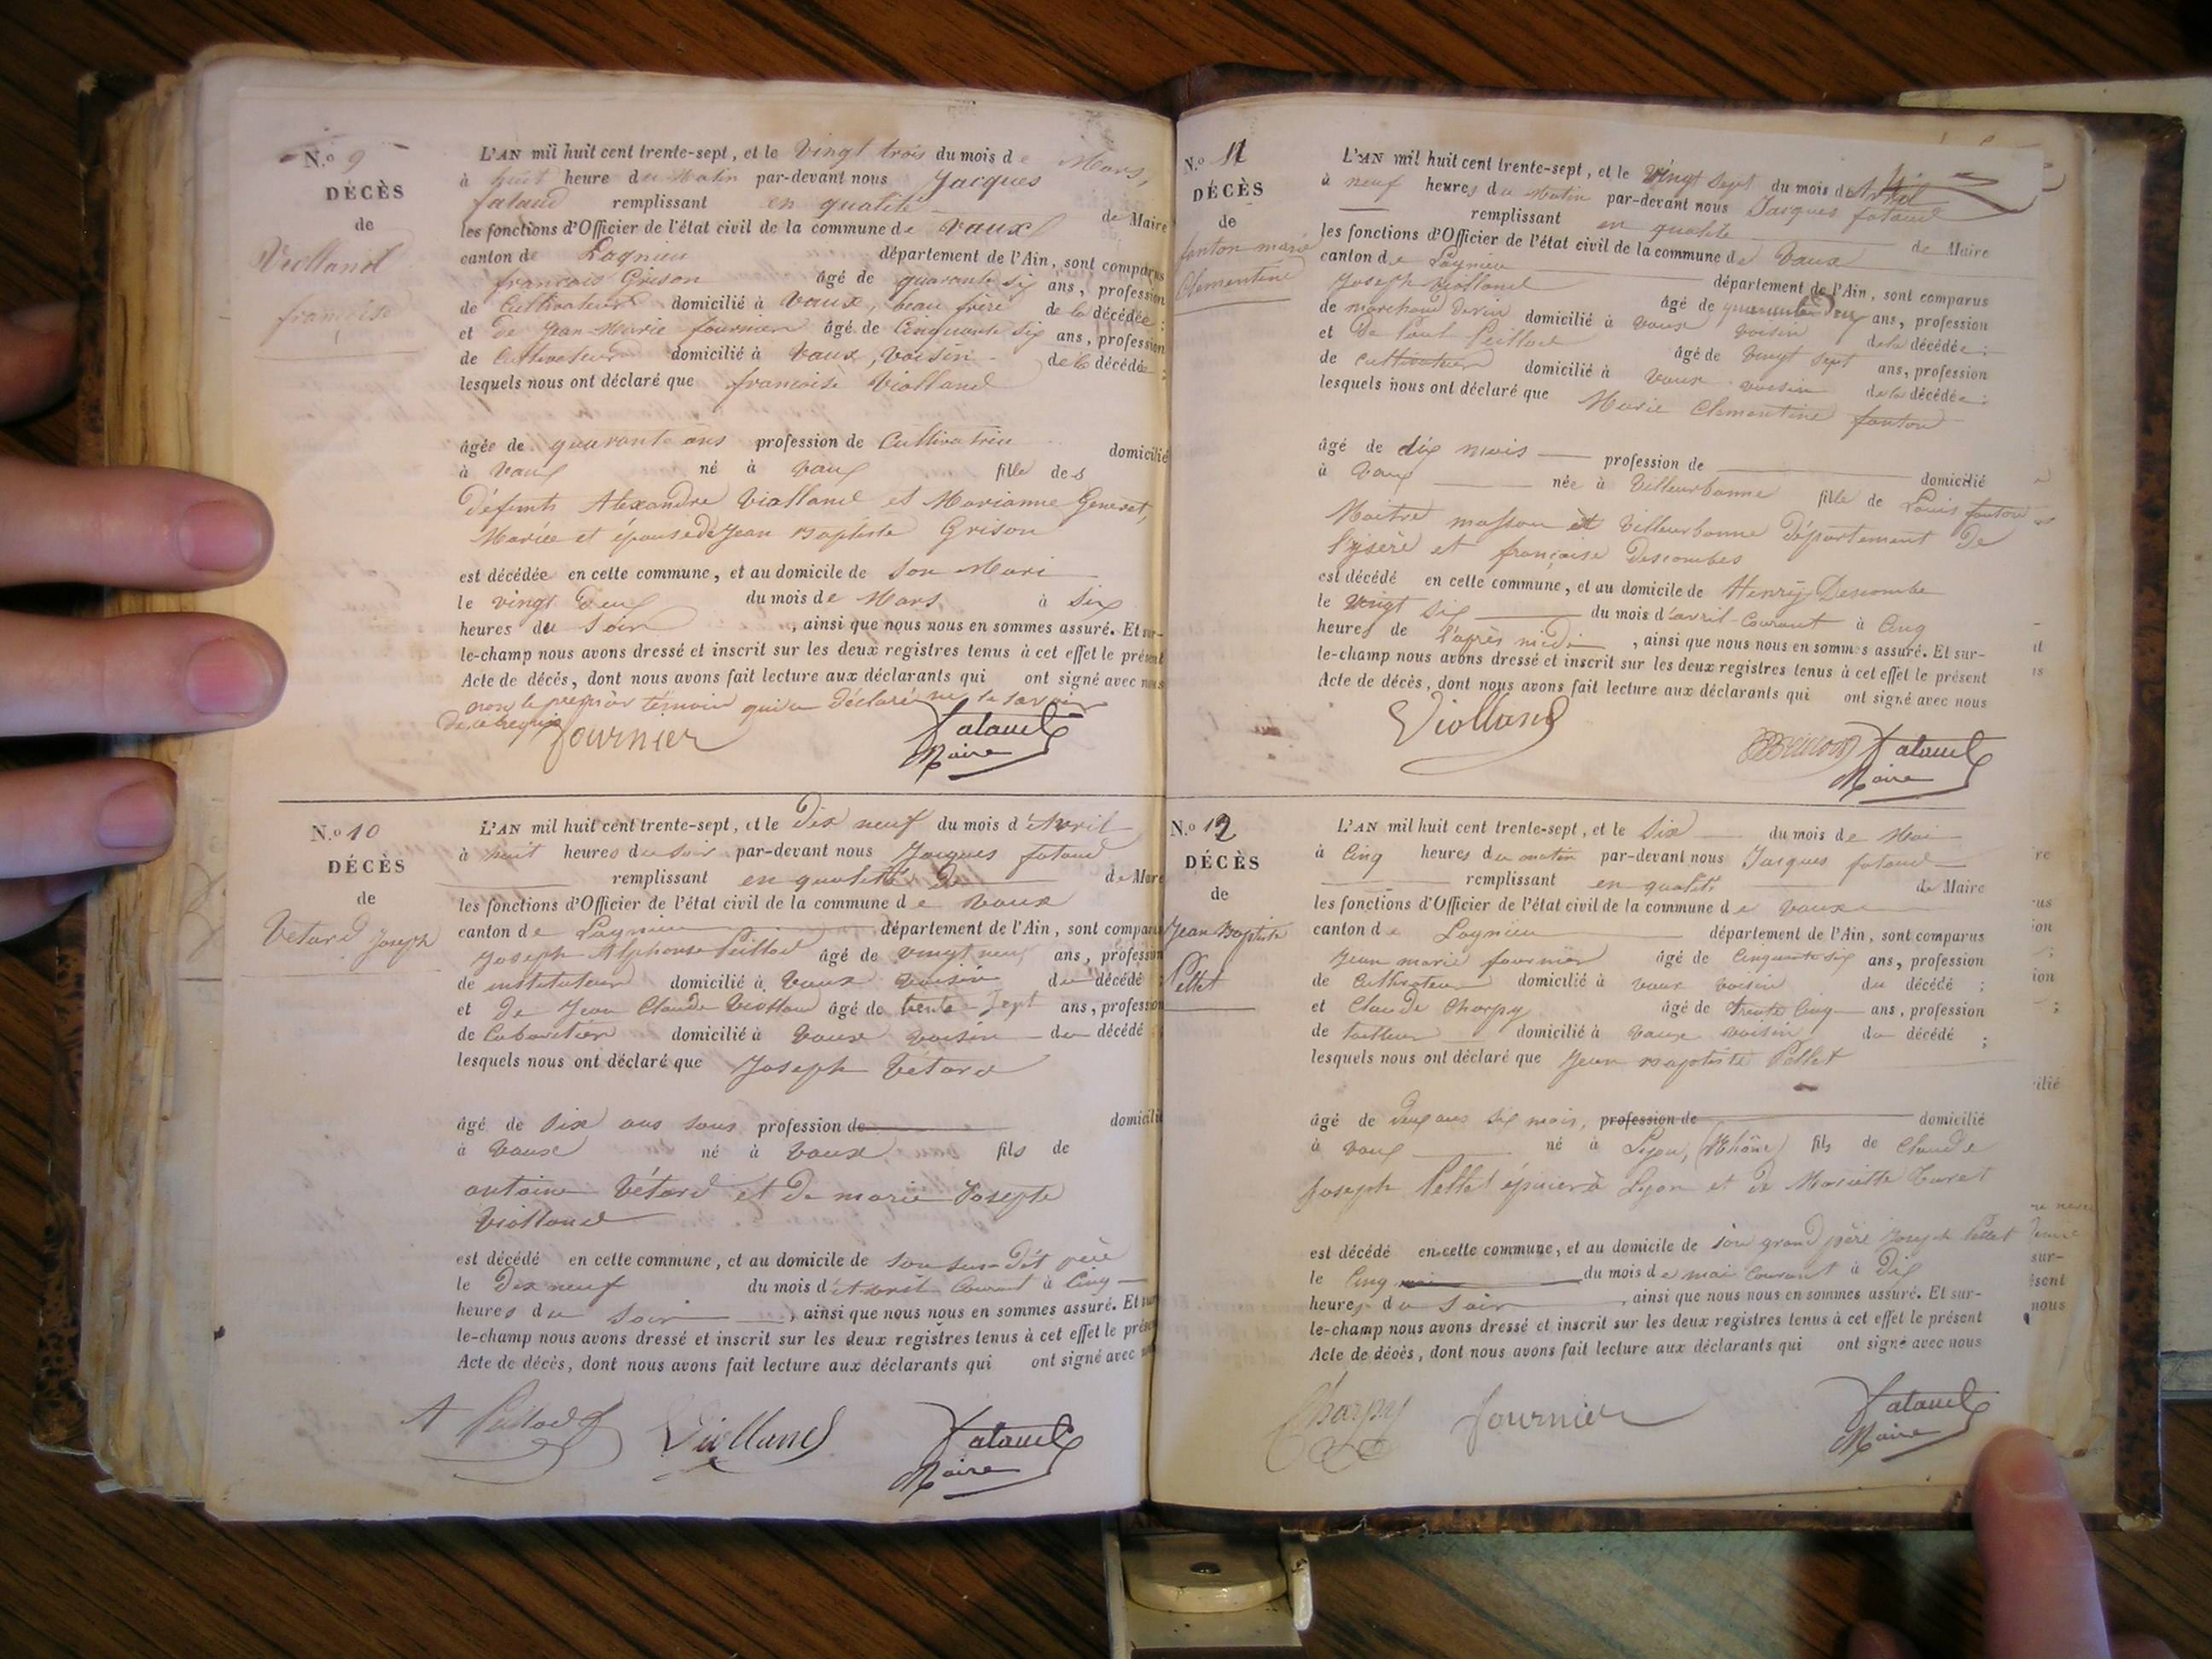 N.o 9
DÉCÈS
de
Violland
françoise
L'AN mil huit cent trente-sept, et le vingt trois du mois de Mars,
à huit heure du Matin par-devant nous Jacques
fataud remplissant en qualité de Maire
les fonctions d'Officier de l'état civil de la commune de vaux
canton de Lagnieu département de l'Ain, sont comparus
francois Grison âgé de quarante six ans, profession
de Cultivateur domicilié à vaux, beau frère de la décédée ;
et de Jean-Marie fournier âgé de Cinquante six ans, profession
de Cultivateur domicilié à vaux, voisin de la décédée ;
lesquels nous ont déclaré que francoise Violland
âgée de quarante ans profession de Cultivatrice domicilié
à vaux né à vaux fille de s
défunts Alexandre Violland et Marianne Genevet,
Mariée et épouse de Jean Baptiste Grison
est décédée en cette commune, et au domicile de son Mari
le vingt deux du mois de Mars à six
heures du soir, ainsi que nous nous en sommes assuré. Et sur-
le-champ nous avons dressé et inscrit sur les deux registres tenus à cet effet le présent
Acte de décès, dont nous avons fait lecture aux déclarants qui ont signé avec nous
non le premier témoin qui a déclaré ne le savoir
de ce requis
fournier
fataud
Maire
N.o 10
DÉCÈS
de
Vétard Joseph
L'AN mil huit cent trente-sept, et le dix neuf du mois d'Avril
à huit heures du soir par-devant nous Jacques fataud
remplissant en qualité de de Maire
les fonctions d'Officier de l'état civil de la commune de vaux
canton de Lagnieu département de l'Ain, sont comparus
Joseph Alphonse Peillod âgé de vingt neuf ans, profession
de instituteur domicilié à vaux voisin du décédé ;
et de Jean Claude Violland âgé de trente-sept ans, profession
de Cabaretier domicilié à vaux voisin du décédé ;
lesquels nous ont déclaré que Joseph Vétard
âgé de dix ans sans profession de domicilié
à vaux né à vaux fils de
antoine Vétard et de marie Josepte
Violland
est décédé en cette commune, et au domicile de son sus-dit père
le dix neuf du mois d'Avril Courant à Cinq
heures du soir, ainsi que nous nous en sommes assuré. Et sur-
le-champ nous avons dressé et inscrit sur les deux registres tenus à cet effet le présent
Acte de décès, dont nous avons fait lecture aux déclarants qui ont signé avec nous
A Peillod
Violland
fataud
Maire
N.o 11
DÉCÈS
de
fanton marie
Clementine
L'AN mil huit cent trente-sept, et le vingt sept du mois d'Avril
à neuf heures du Matin par-devant nous Jacques fataud
remplissant en qualité de Maire
les fonctions d'Officier de l'état civil de la commune de Vaux
canton de Lagnieu département de l'Ain, sont comparus
Joseph Violland âgé de quarante deux ans, profession
de marchand de vin domicilié à vaux voisin de la décédée ;
et de Paul Peillod âgé de vingt sept ans, profession
de cultivateur domicilié à vaux voisin de la décédée ;
lesquels nous ont déclaré que Marie Clementine fanton
âgé de dix mois profession de domicilié
à vaux née à Villeurbanne fille de Louis fanton
Maitre masson à Villeurbanne département de
l'ysère et françoise Descombes
est décédé en cette commune, et au domicile de Henry Descombe
le vingt six du mois d'avril Courant à Cinq
heures de l'après midi, ainsi que nous nous en sommes assuré. Et sur-
le-champ nous avons dressé et inscrit sur les deux registres tenus à cet effet le présent
Acte de décès, dont nous avons fait lecture aux déclarants qui ont signé avec nous
Violland
fataud
Maire
N.o 12
DÉCÈS
de
Jean Baptiste
Pellet
L'AN mil huit cent trente-sept, et le Six du mois de Mai
à Cinq heures du matin par-devant nous Jacques fataud
remplissant en qualité de Maire
les fonctions d'Officier de l'état civil de la commune de vaux
canton de Lagnieu département de l'Ain, sont comparus
Jean marie fournier âgé de Cinquante six ans, profession
de Cultivateur domicilié à vaux voisin du décédé ;
et Claude Charpy âgé de trente Cinq ans, profession
de tailleur domicilié à vaux voisin du décédé ;
lesquels nous ont déclaré que Jean Baptiste Pellet
âgé de deux ans six mois, profession de domicilié
à vaux né à Lyon, (Rhône) fils de Claude
Joseph Pellet épicier à Lyon et de Mariette Curet
est décédé en cette commune, et au domicile de son grand père Joseph Pellet
le Cinq du mois de mai Courant à Dix
heures du soir, ainsi que nous nous en sommes assuré. Et sur-
le-champ nous avons dressé et inscrit sur les deux registres tenus à cet effet le présent
Acte de décès, dont nous avons fait lecture aux déclarants qui ont signé avec nous
Charpy
fournier
fataud
Maire